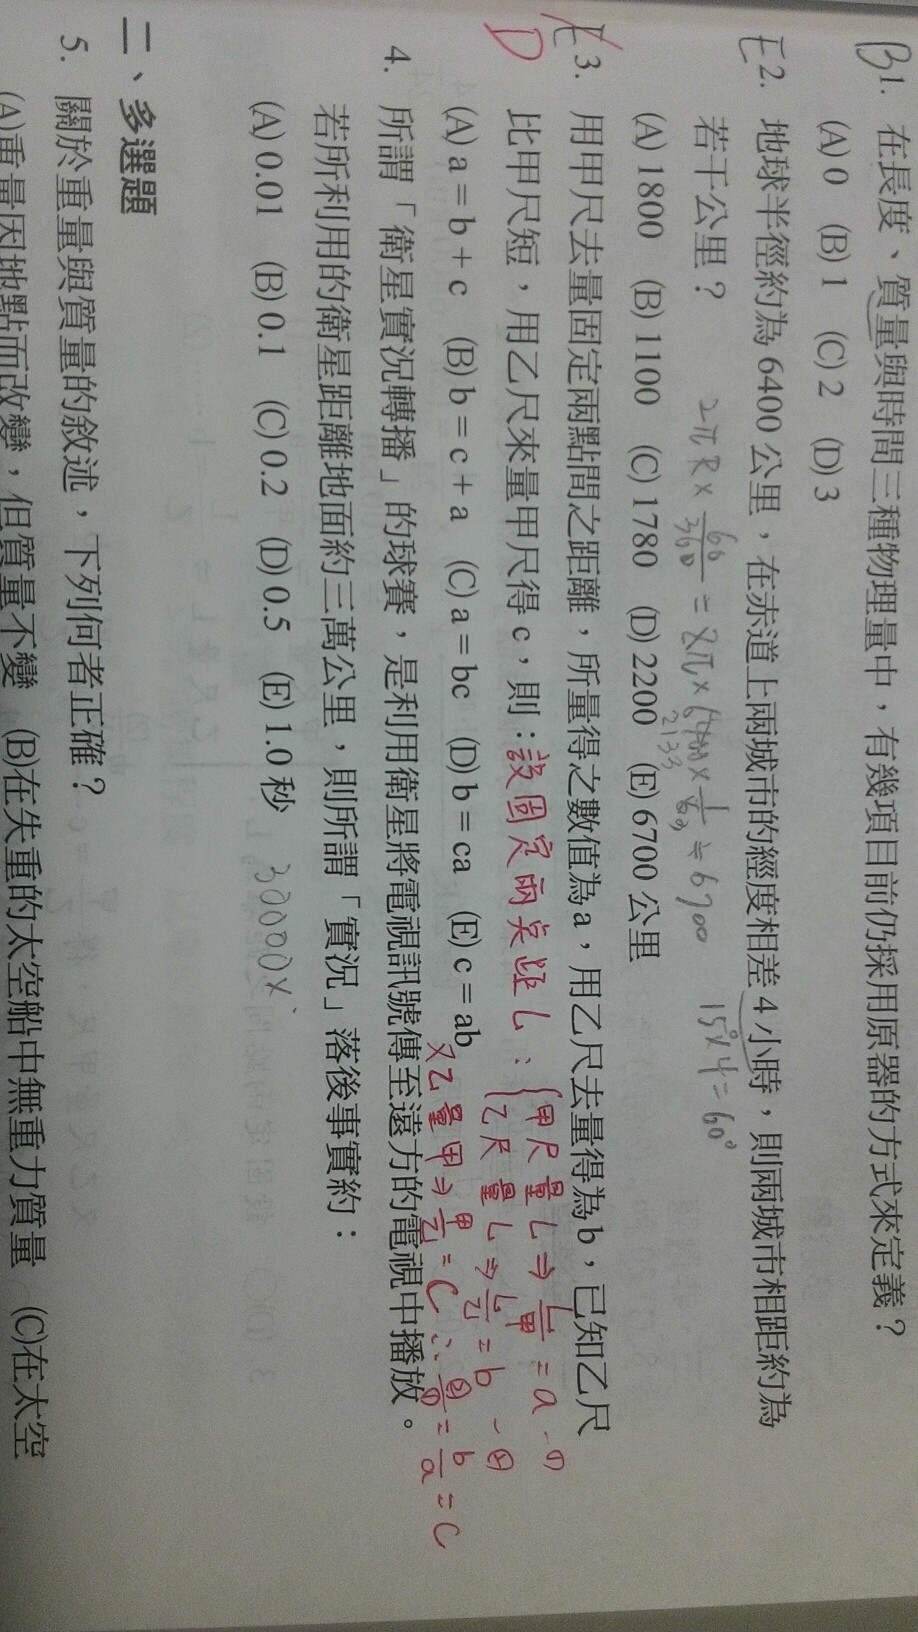 B 1. 在長度、質量與時間三種物理量中，有幾項目前仍採用原器的方式來定義？
(A) 0 (B) 1 (C) 2 (D) 3
E 2. 地球半徑約為 6400 公里，在赤道上兩城市的經度相差 4 小時，則兩城市相距約為
若干公里？ 2πR × 60/360 = 2π × 6400 × 1/6 ≒ 6700 15° × 4 = 60°
2133
(A) 1800 (B) 1100 (C) 1780 (D) 2200 (E) 6700 公里
E D 3. 用甲尺去量固定兩點間之距離，所量得之數值為 a，用乙尺去量得為 b，已知乙尺
比甲尺短，用乙尺來量甲尺得 c，則：設固定兩點距 L：
甲尺量 L ⇒ L/甲 = a －①
乙尺量 L ⇒ L/乙 = b －②
(A) a = b + c (B) b = c + a (C) a = bc (D) b = ca (E) c = ab
又乙量甲 ⇒ 甲/乙 = C ∴ ②/① = b/a = C
4. 所謂「衛星實況轉播」的球賽，是利用衛星將電視訊號傳至遠方的電視中播放。
若所利用的衛星距離地面約三萬公里，則所謂「實況」落後事實約：
(A) 0.01 (B) 0.1 (C) 0.2 (D) 0.5 (E) 1.0 秒 30000×
二、多選題
5. 關於重量與質量的敘述，下列何者正確？
(A)重量因地點而改變，但質量不變 (B)在失重的太空船中無重力質量 (C)在太空